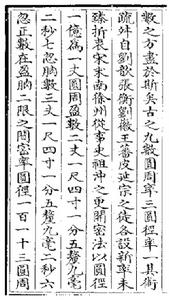 數之方盡於斯矣古之九數圓周率三圓徑率一其術
疏舛自劉歆張衡劉徽王蕃皮延宗之徒各設新率未
臻折衷宋末南徐州從事史祖沖之更開密法以圓徑
一億為一丈圓周盈數三丈一尺四寸一分五釐九毫
二秒七忽朒數三丈一尺四寸一分五釐九毫二秒六
忽正數在盈朒二限之間密率圓徑一百一十三圓周